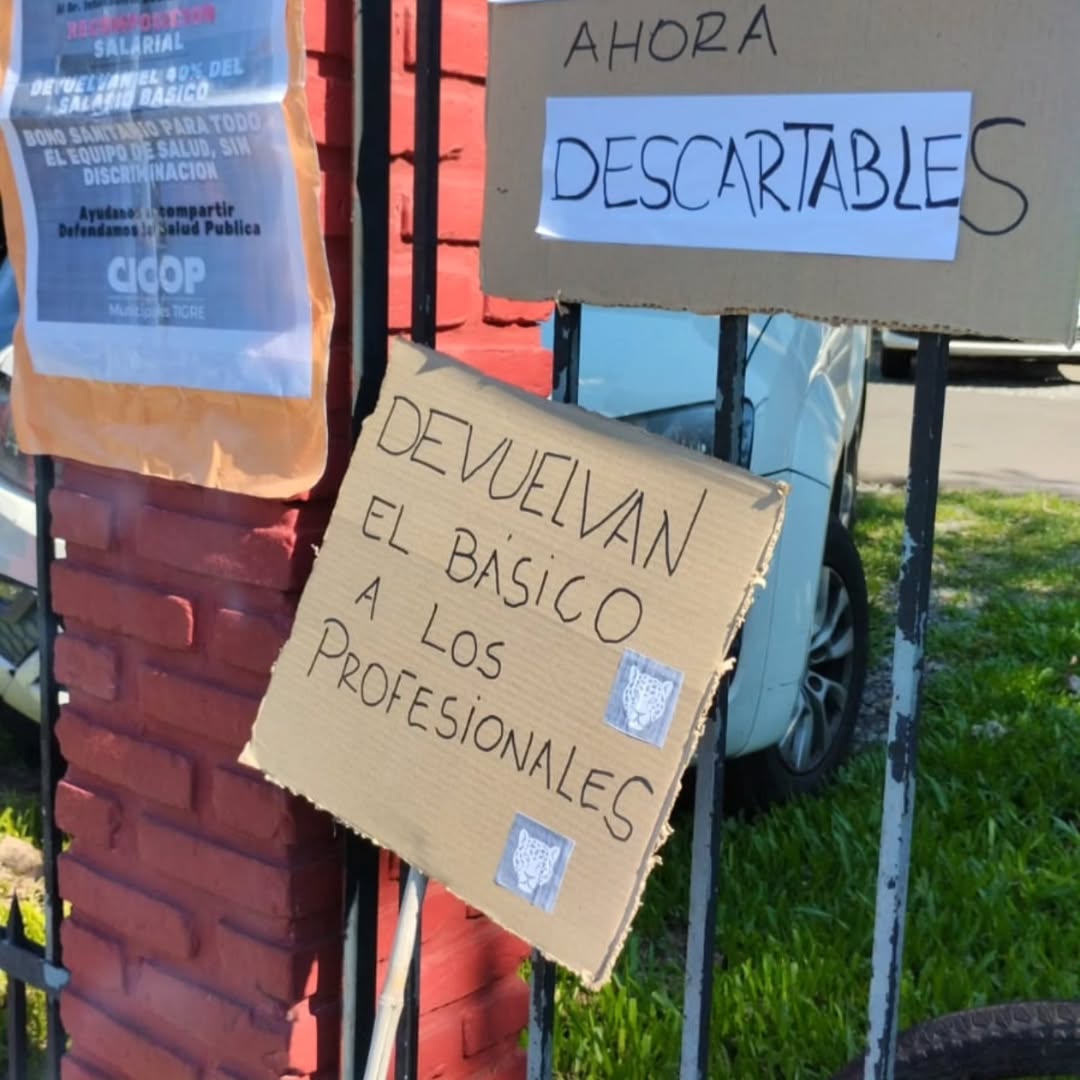 RECOMPOSICION
SALARIAL
DEVUELVAN EL 40% DEL
SALARIO BASICO
BONO SANITARIO PARA TODO
EL EQUIPO DE SALUD, SIN
DISCRIMINACION
Ayudanos a compartir
Defendamos la Salud Publica
CICOP
Municipales TIGRE
AHORA
DESCARTABLES
DEVUELVAN
EL BÁSICO
A LOS
PROFESIONALES